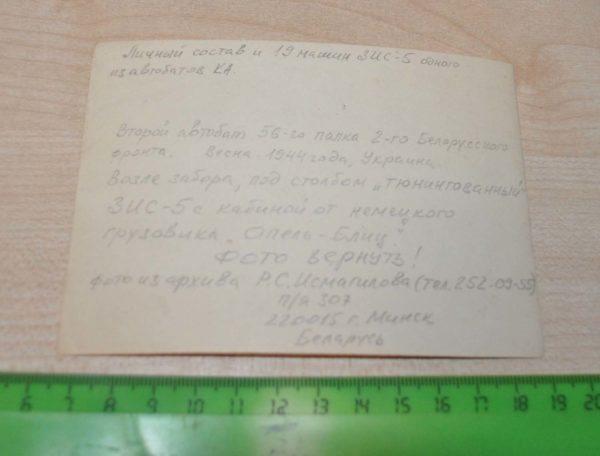 Личный состав и 19 машин ЗИС-5 одного
из автобатов КА.
Второй автобат 56-го полка 2-го Белорусского
фронта. Весна 1944 года, Украина.
Возле забора, под столбом „тюнингованный"
ЗИС-5 с кабиной от немецкого
грузовика „Опель-Блиц".
Фото вернуть!
Фото из архива Р.С.Исмагилова (тел. 252-09-55)
п/я 307
220015 г. Минск
Беларусь
6 7 8 9 10 11 12 13 14 15 16 17 18 19 20